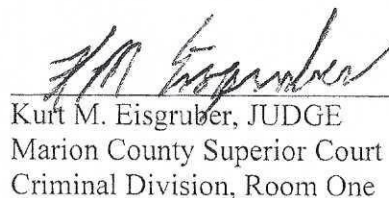 KM Eisgruber
Kurt M. Eisgruber, JUDGE
Marion County Superior Court
Criminal Division, Room One